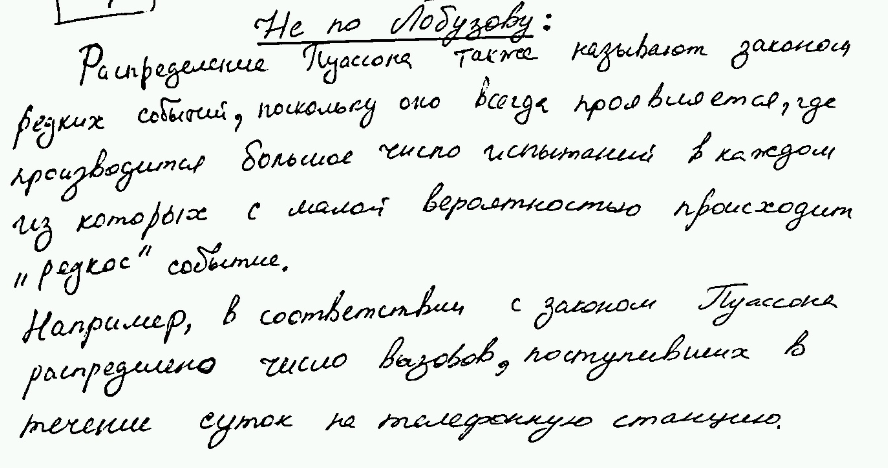 Не по Лобузову:
Распределение Пуассона также называют законом
редких событий, поскольку оно всегда проявляется, где
производится большое число испытаний в каждом
из которых с малой вероятностью происходит
"редкое" событие.
Например, в соответствии с законом Пуассона
распределено число вызовов, поступивших в
течение суток на телефонную станцию.